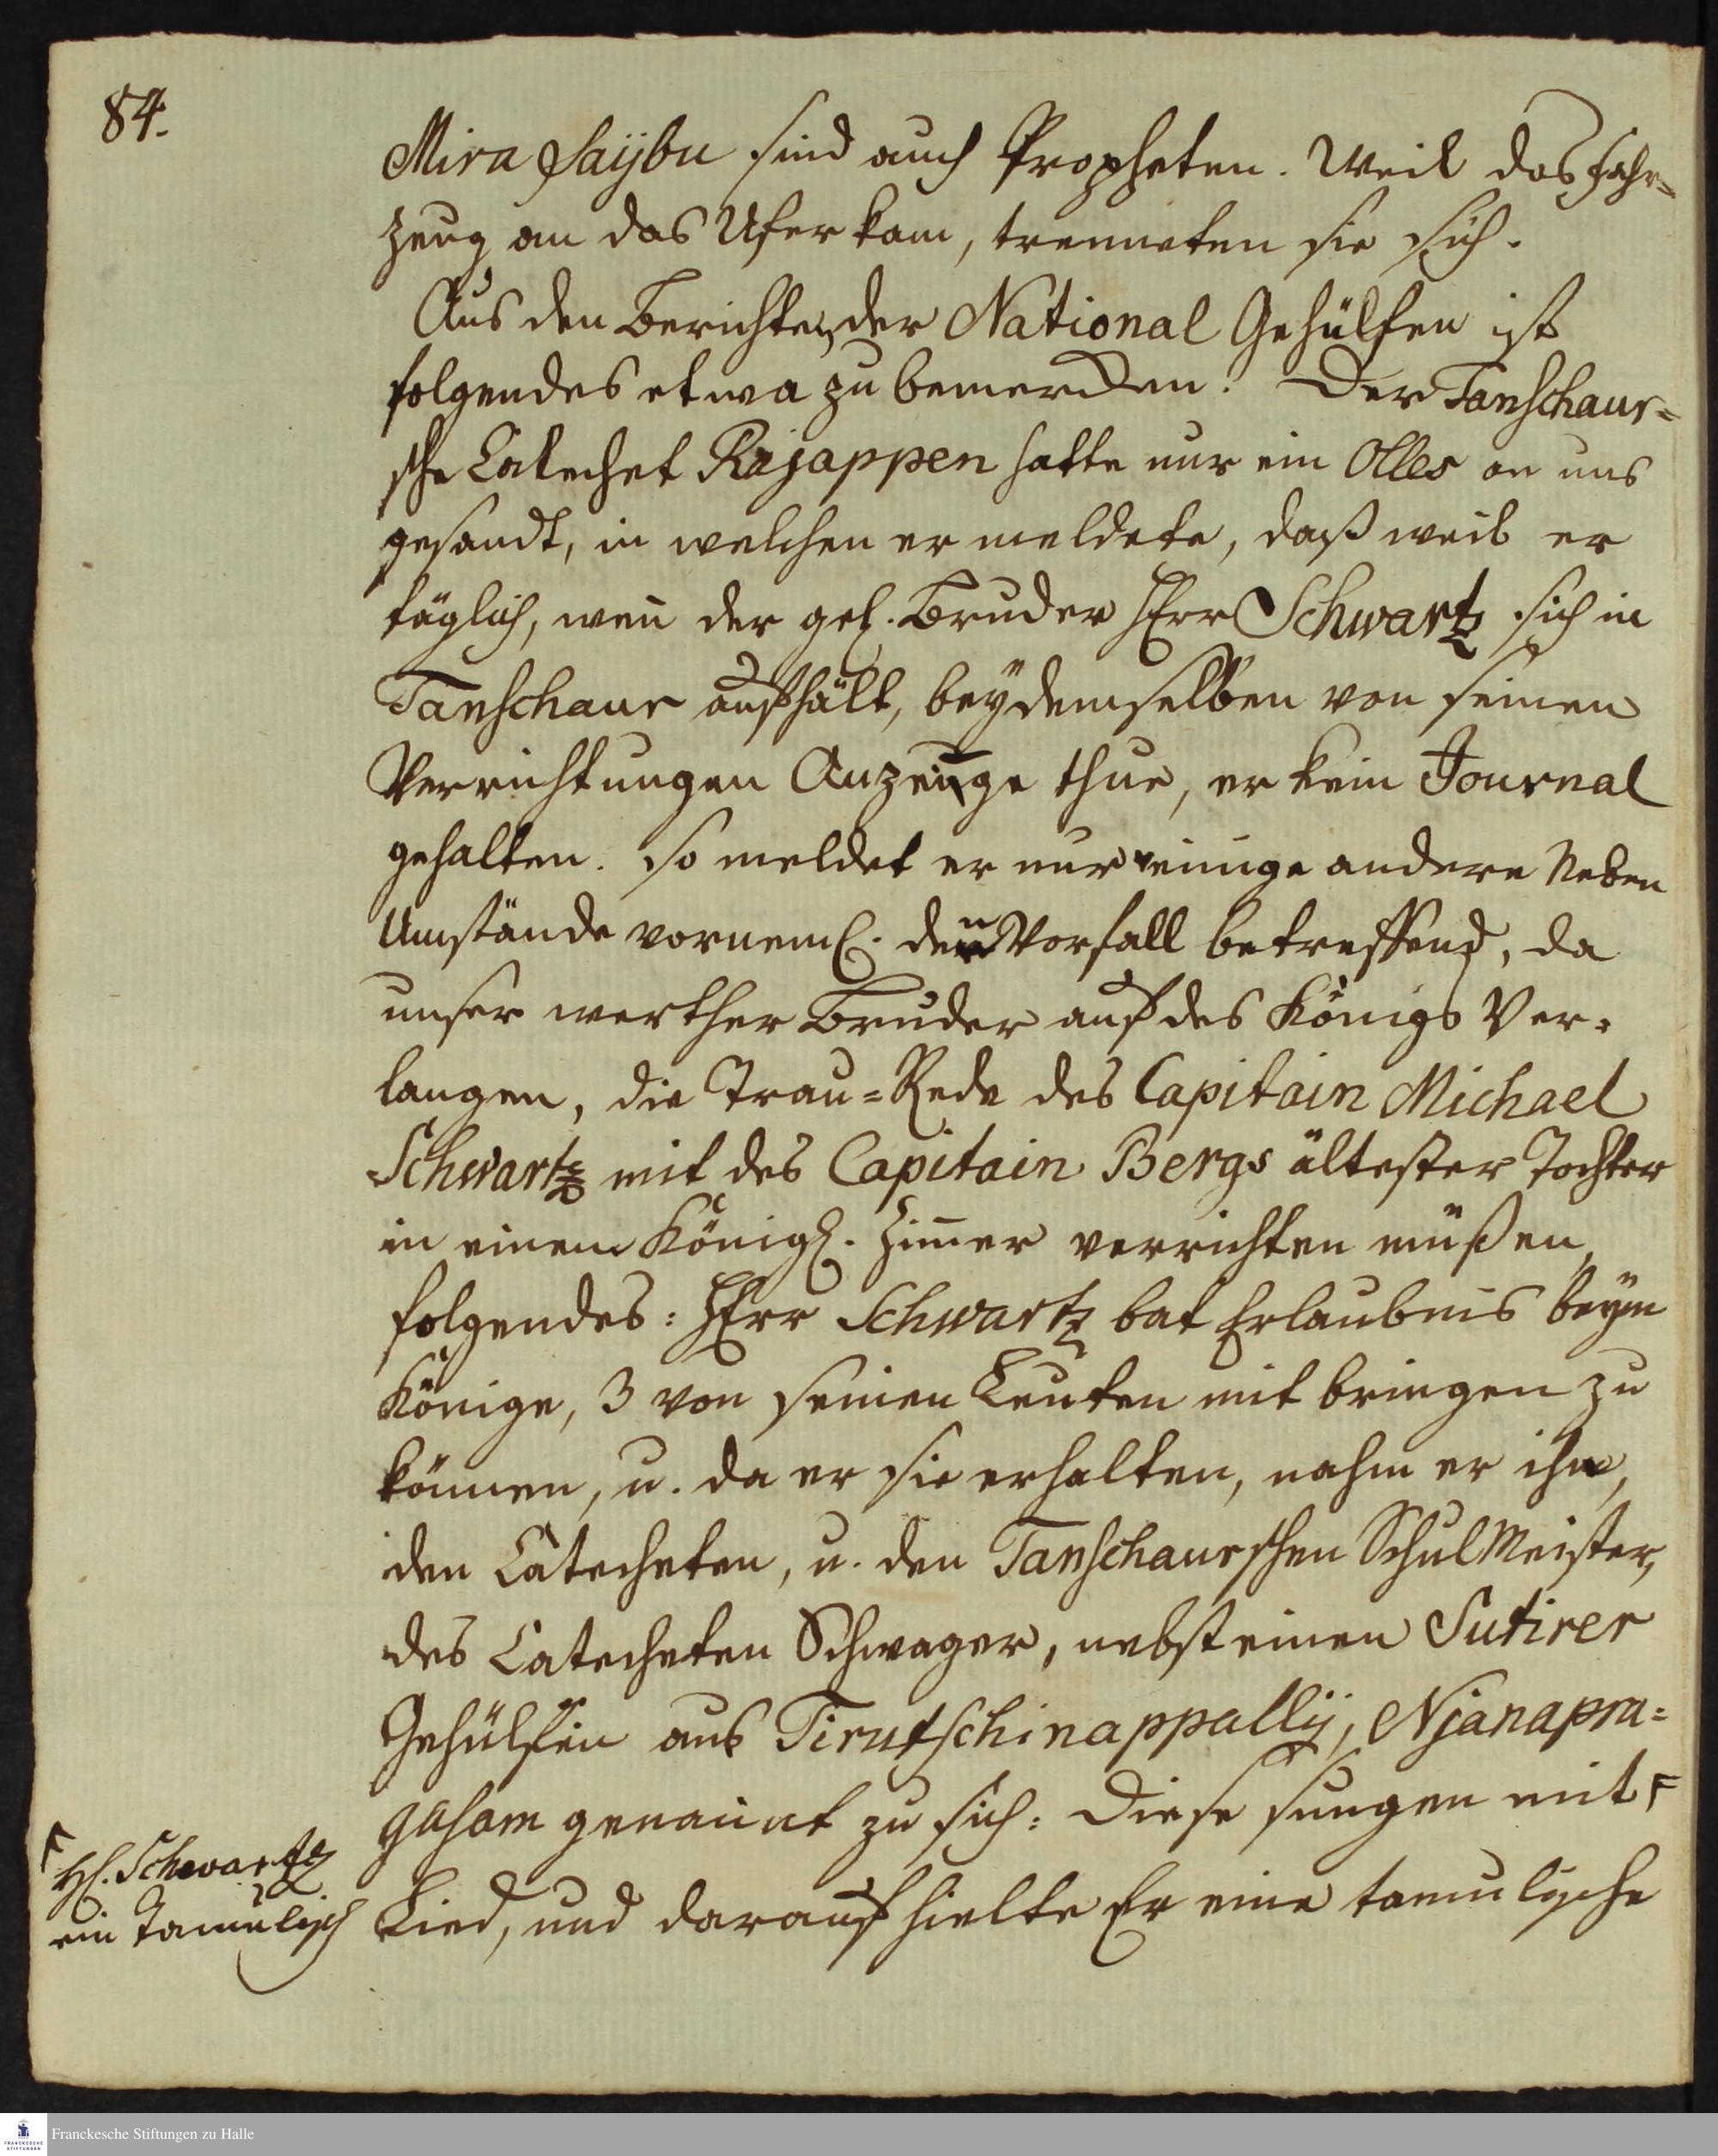 84.
Mira Saijbu sind auch Propheten. Weil das Fahr=
zeug an das Ufer kam, trenneten sie sich.
Aus den Berichten der National Gehülfen ist
folgendes etwa zu bemercken: Der Tanschaur=
sche Catechet Rájappen hatte nur ein Olles an uns
gesandt, in welchen er meldete, daß weil er
täglich, weñ der gel. Bruder HErr Schwartz sich in
Tanschaur aufhält, bey demselben von seinen
Verrichtungen Anzeige thue, er kein Journal
gehalten. so meldet er nur einige andere Neben
Umstände vorneml. den Vorfall betreffend, da
unser werther Bruder auf des Königs Ver=
langen, die Trau=Rede des Capitain Michael
Schwartz mit des Capitain Bergs ältester Tochter
in einem Königl. Zim̄er verrichten müßen,
folgendes: HErr Schwartz bat Erlaubnis beym
Könige, 3 von seinen Leuten mit bringen zu
können, u. da er sie erhalten, nahm er ihn,
den Catecheten, u. den Tanschaurschen SchulMeister,
des Catecheten Schwager, nebst einen Sutirer
Gehülfen aus Tirutschinappallij, Njanapra=
gasam genannt zu sich: Diese sungen mit
Hl. Schwartz
ein Tamulisch
Lied, und darauf hielte Er eine tamulische
Franckesche Stiftungen zu Halle
FRANCKESCHE
STIFTUNGEN